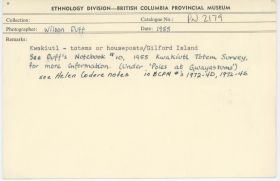 ETHNOLOGY DIVISION—BRITISH COLUMBIA PROVINCIAL MUSEUM
Collection: Catalogue No.: PN 2179
Photographer: Wilson Duff Date: 1955
Remarks:
Kwakiutl - totems or houseposts/Gilford Island
See Duff's Notebook #10, 1955 Kwakiutl Totem Survey,
for more information. (Under 'Poles at Gwayasdums')
see Helen Codere notes in BCPM #'s 1972-40, 1972-46